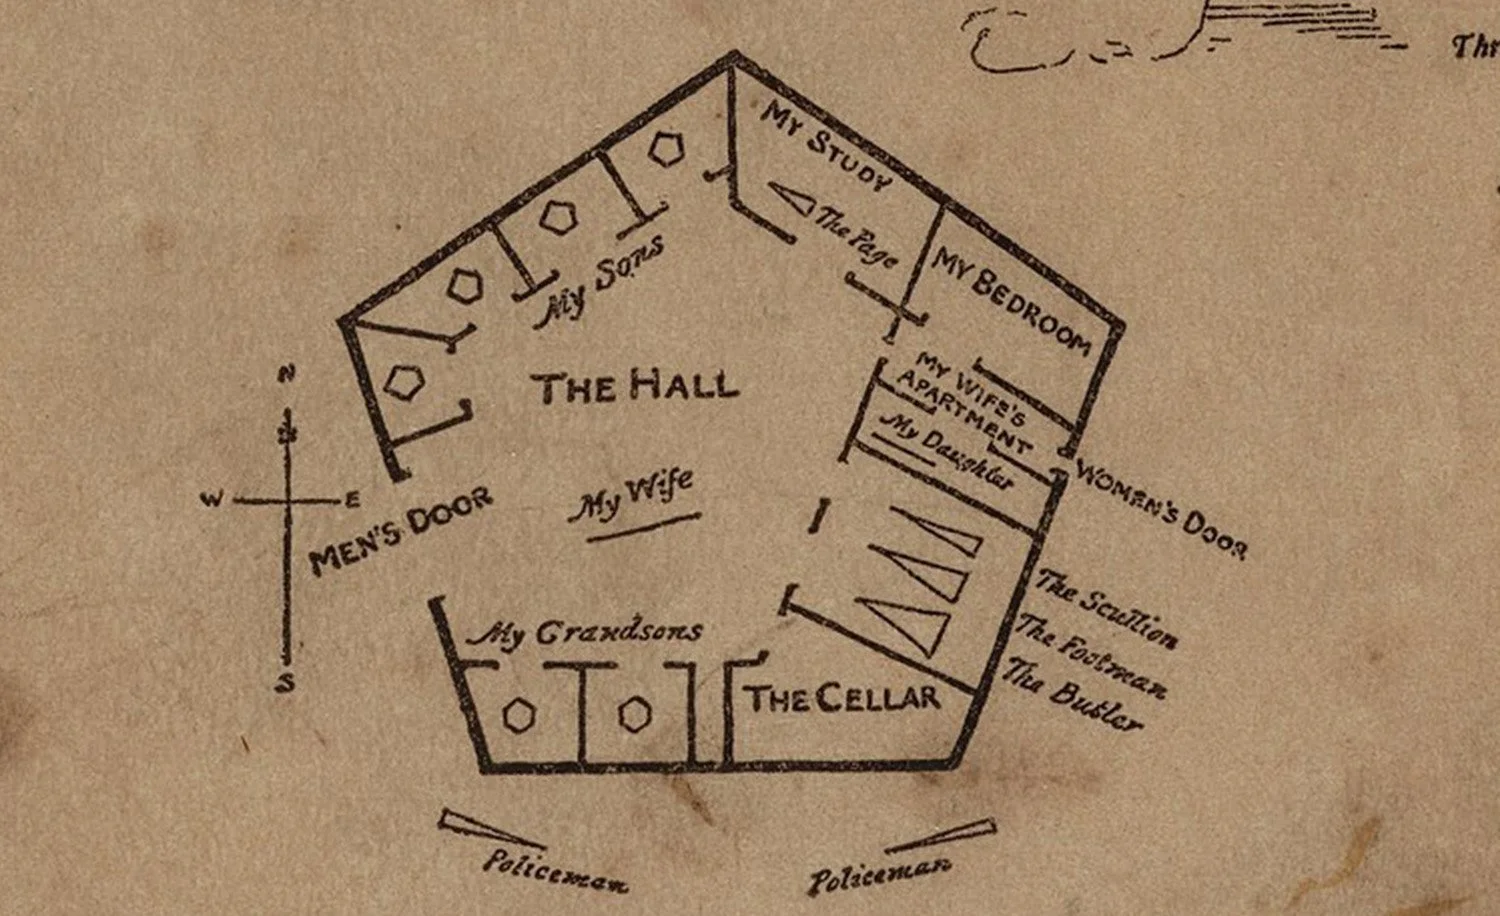 Thr
MY STUDY
The Page
MY BEDROOM
My Sons
THE HALL
MY WIFE'S
APARTMENT
My Daughter
WOMEN'S DOOR
N
W E
S
MEN'S DOOR
My Wife
The Scullion
The Footman
The Butler
My Grandsons
THE CELLAR
Policeman
Policeman